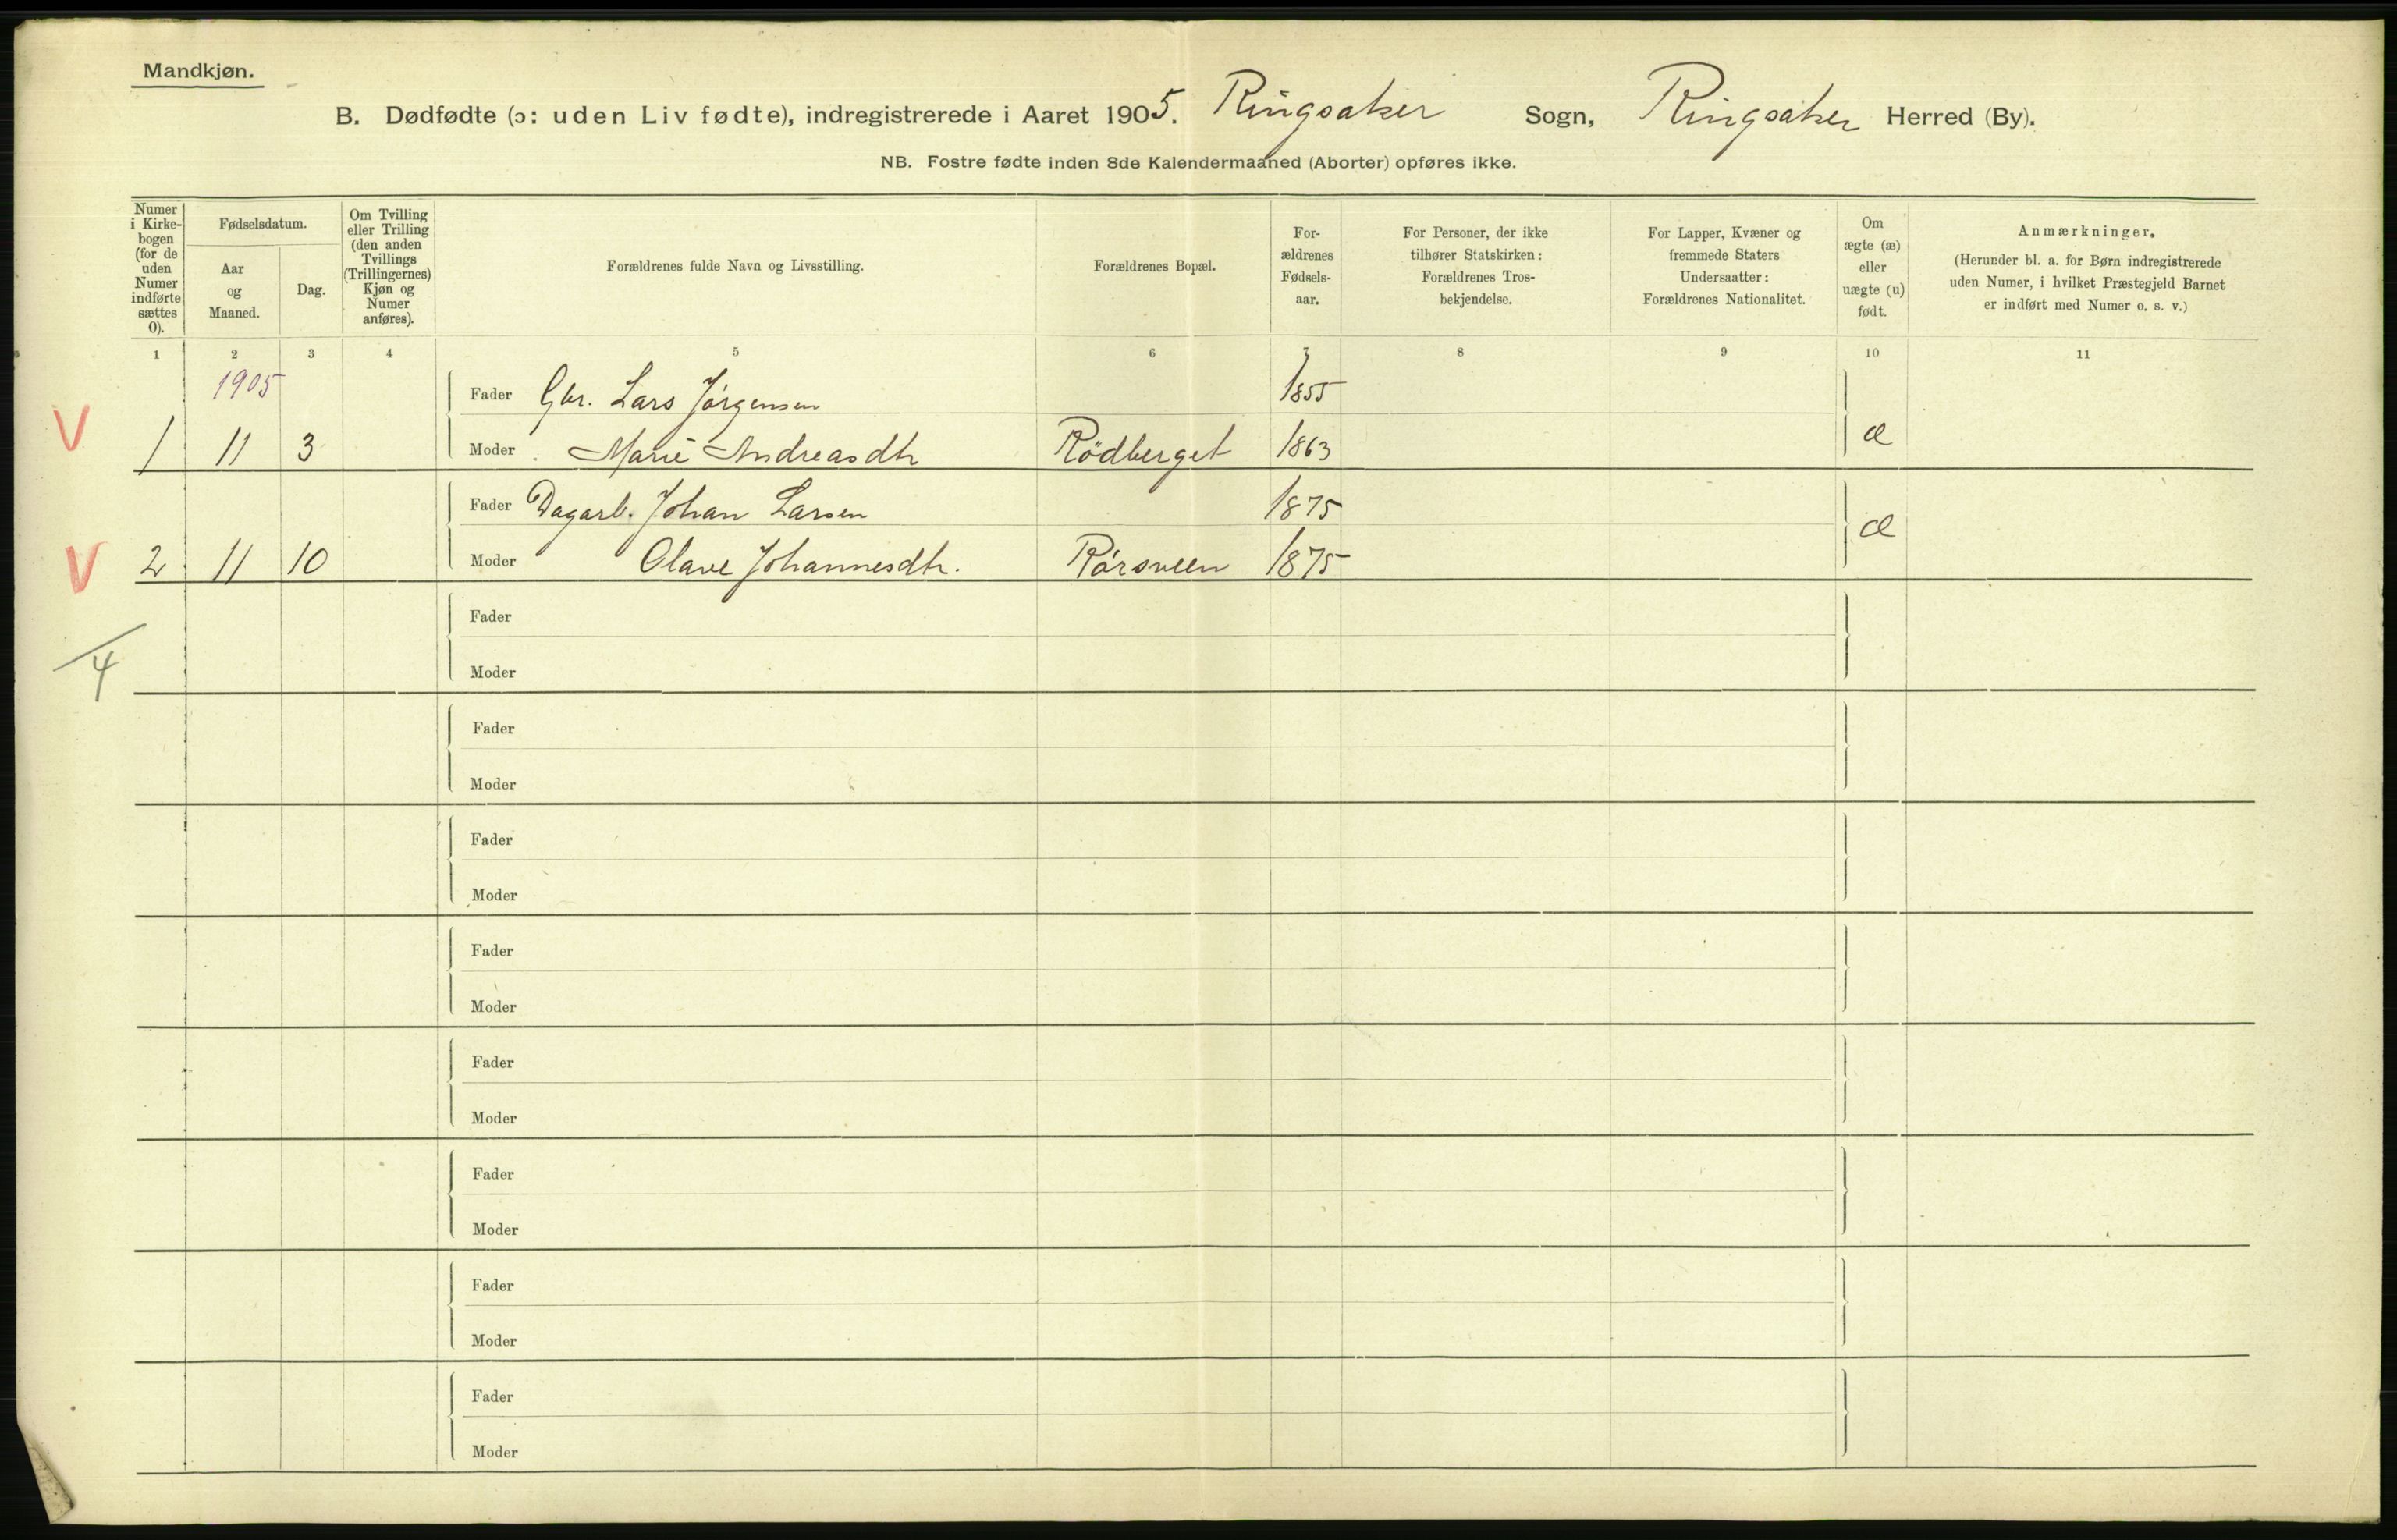 Mandkjøn.
B. Dødfødte (ɔ: uden Liv fødte), indregistrerede i Aaret 1905. Ringsaker Sogn, Ringsaker Herred (By).
NB. Fostre fødte inden 8de Kalendermaaned (Aborter) opføres ikke.
Numer i Kirkebogen (for de uden Numer indførte sættes 0).
Fødselsdatum.
Aar og Maaned.
Dag.
Om Tvilling eller Trilling (den anden Tvillings (Trillingernes) Kjøn og Numer anføres).
Forældrenes fulde Navn og Livsstilling.
Forældrenes Bopæl.
For-ældrenes Fødsels-aar.
For Personer, der ikke tilhører Statskirken: Forældrenes Tros-bekjendelse.
For Lapper, Kvæner og fremmede Staters Undersaatter: Forældrenes Nationalitet.
Om ægte (æ) eller uægte (u) født.
Anmærkninger.
(Herunder bl. a. for Børn indregistrerede uden Numer, i hvilket Præstegjeld Barnet er indført med Numer o. s. v.)
1 2 3 4 5 6 7 8 9 10 11
1905
Fader Gbr. Lars Jørgensen 1855
V 1 11 3 Moder Marie Andreasdtr Rödberget 1863 æ
Fader Dagarb. Johan Larsen 1875
V 2 11 10 Moder Olave Johannesdtr. Rørsveen 1875 æ
Fader
4
Moder
Fader
Moder
Fader
Moder
Fader
Moder
Fader
Moder
Fader
Moder
Fader
Moder
Fader
Moder